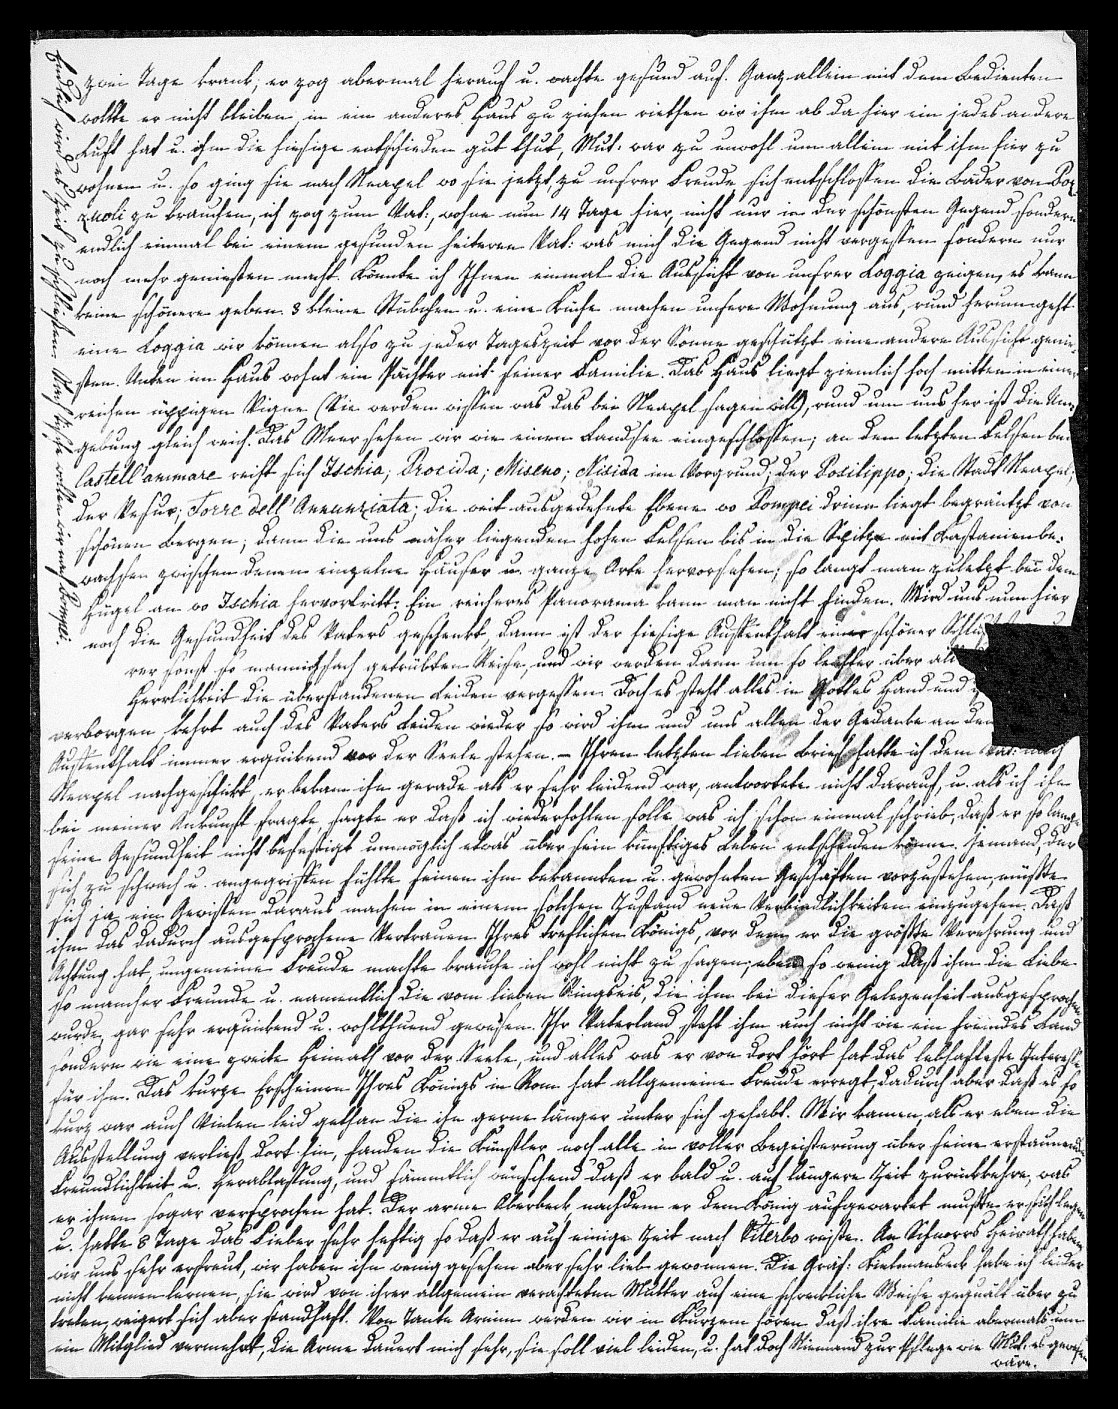 zwei Tage krank, er zog abermal herauf u. wachte gesund auf. Ganz allein mit dem Bedienten
wollte er nicht bleiben, in ein anderes Haus zu ziehen riethen wir ihm ab da hier ein jedes andere
Luft hat u. ihm die hiesige entschieden gut thut, Mut: war zu unwohl um allein mit ihm hier zu
wohnen u. so ging sie nach Neapel wo sie jetzt zu unsrer Freude sich entschlossen die Bäder von Poz
zuoli zu brauchen, ich zog zum Vat:, wohne nun 14 Tage hier, nicht nur in der schönsten Gegend sondern
endlich einmal bei einem gesunden heiteren Vat: was mich die Gegend nicht vergessen sondern nur
noch mehr genießen macht. Könnte ich Ihnen einmal die Aussicht von unsrer Loggia zeigen, es kann
keine schönere geben. 3 kleine Stübchen u. eine Küche machen unsere Wohnung aus, rund herum geht
eine Loggia wir können also zu jeder Tageszeit vor der Sonne geschützt eine andere Aussicht genie-
ßen. Unten im Haus wohnt ein Pächter mit seiner Familie. Das Haus liegt ziemlich hoch mitten in einer
reichen üppigen Vigne (Sie werden wissen was das bei Neapel sagen will), rund um uns her ist die Um-
gebung gleich reich. Das Meer sehen wir wie einen Landsee eingeschlossen; an den letzten Felsen bei
Castell'ammare reiht sich Ischia; Procida; Miseno; Nisida im Vorgrund; der Posilippo; die Stadt Neapel;
der Vesuv; Torre dell'Annunziata; die weit ausgedehnte Ebene wo Pompei drinn liegt begränzt von
schönen Bergen; dann die uns näher liegenden hohen Felsen bis in die Spitze mit Kastanien be-
wachsen zwischen denen einzelne Häuser u. ganze Orte hervorsehen; so langt man zuletzt bei dem
Hügel an wo Ischia hervortritt. Ein reicheres Panorama kann man nicht finden. Wird uns nun hier
noch die Gesundheit des Vaters geschenkt, dann ist der hiesige Aufenthalt ein schöner
rer sonst so mannichfach getrübten Reise, und wir werden dann um so leichter über
Herrlichkeit die überstandenen Leiden vergessen. Doch es steht alles in Gottes Hand und
verborgen kehrt auch des Vaters Leiden wieder so wird ihm und uns allen der Gedanke an den
Aufenthalt immer erquickend vor der Seele stehen. – Ihren letzten lieben Brief hatte ich dem Vat: nach
Neapel nachgeschickt, er bekam ihn gerade als er sehr leidend war, antwortete nicht darauf, u. als ich ihn
bei meiner Ankunft fragte, sagte er daß ich wiederhohlen solle was ich schon einmal schrieb, daß er so lange
seine Gesundheit nicht befestigt unmöglich etwas über sein künftiges Leben entscheiden könne. Jemand der
sich zu schwach u. angegriffen fühlte seinen ihm bekannten u. gewohnten Geschäften vorzustehen, müßte
sich ja ein Gewissen daraus machen in einem solchen Zustand neue Verbindlichkeiten einzugehen. Daß
ihm das dadurch ausgesprochene Vertrauen Ihres trefflichen Königs, vor dem er die größte Verehrung und
Achtung hat, ungemeine Freude machte brauche ich wohl nicht zu sagen, eben so wenig daß ihm die Liebe
so mancher Freunde u. namentlich die vom lieben Ringseis, die ihm bei dieser Gelegenheit ausgesprochen
wurde, gar sehr erquickend u. wohlthuend gewesen. Ihr Vaterland steht ihm auch nicht wie ein fremdes Land
sondern wie eine zweite Heimath vor der Seele, und alles was er von dort hört hat das lebhafteste Interesse
für ihn. Das kurze Erscheinen Ihres Königs in Rom hat allgemeine Freude erregt, dadurch aber daß es so
kurz war auch Vielen leid gethan die ihn gerne länger unter sich gehabt. Wir kamen als er eben die
Ausstellung verließ dort hin, fanden die Künstler noch alle in voller Begeisterung über seine erstaunende
Freundlichkeit u. Herablassung, und sämmtlich wünschend daß er bald u. auf längere Zeit zurückkehre, was
er ihnen sogar versprochen hat. Der arme Oberbeck nachdem er dem König aufgewartet mußte er sich legen
u. hatte 8 Tage das Fieber sehr heftig so daß er auf einige Zeit nach Viterbo reiste. An Schnorrs Heirath haben
wir uns sehr erfreut, wir haben ihn wenig gesehen aber sehr lieb gewonnen. Die Gräf: habe ich leider
nicht kennen lernen, sie wird von ihrer allgemein verachteten Mutter auf eine schreckliche Weise gequält über zu
treten, weigert sich aber standhaft. Von Tante Arnim werden wir in Kurzem hören daß ihre Familie abermals um
ein Mitglied vermehrt, die Arme dauert mich sehr, sie soll viel leiden, u. hat doch Niemand zur Pflege wie Mut: es gewesen
wäre.
wird es Zeit zu schließen. wollen wir nach Pompei.